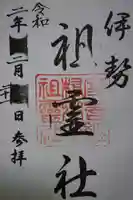 伊勢
祖霊社
令和二年二月二十日参拝